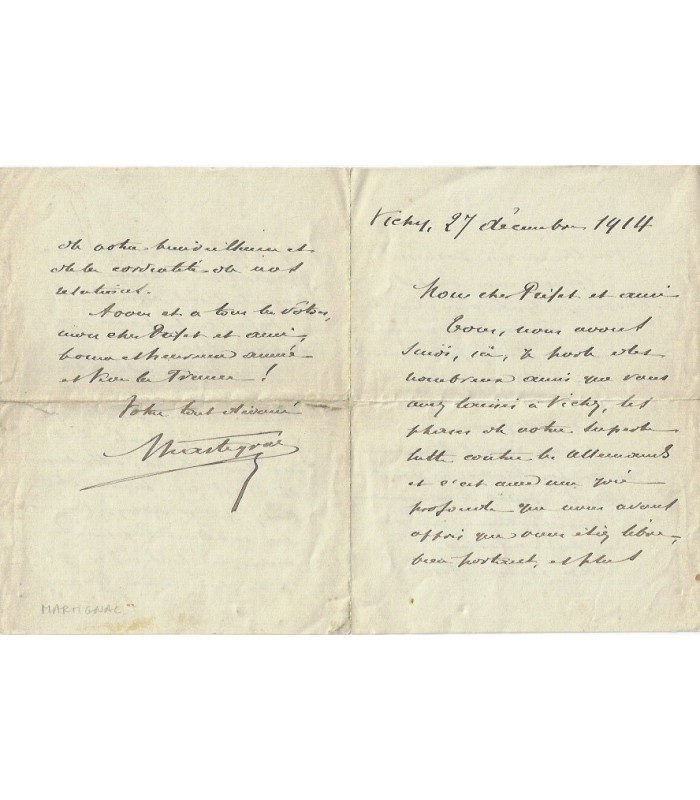 Vichy, 27 décembre 1914
Mon cher Préfet et ami
Tous, nous avons
suivi, ici, je parle des
nombreux amis que vous
avez laissés à Vichy, les
phases de votre superbe
lutte contre les Allemands
et c'est avec une joie
profonde que nous avons
appris que vous étiez libre,
bien portant, et plus
de votre bienveillance et
de la cordialité de nos
relations.
A vous et à tous les vôtres,
mon cher Préfet et ami,
bonne et heureuse année
et Vive la France !
Votre tout dévoué
Martignac
MARTIGNAC